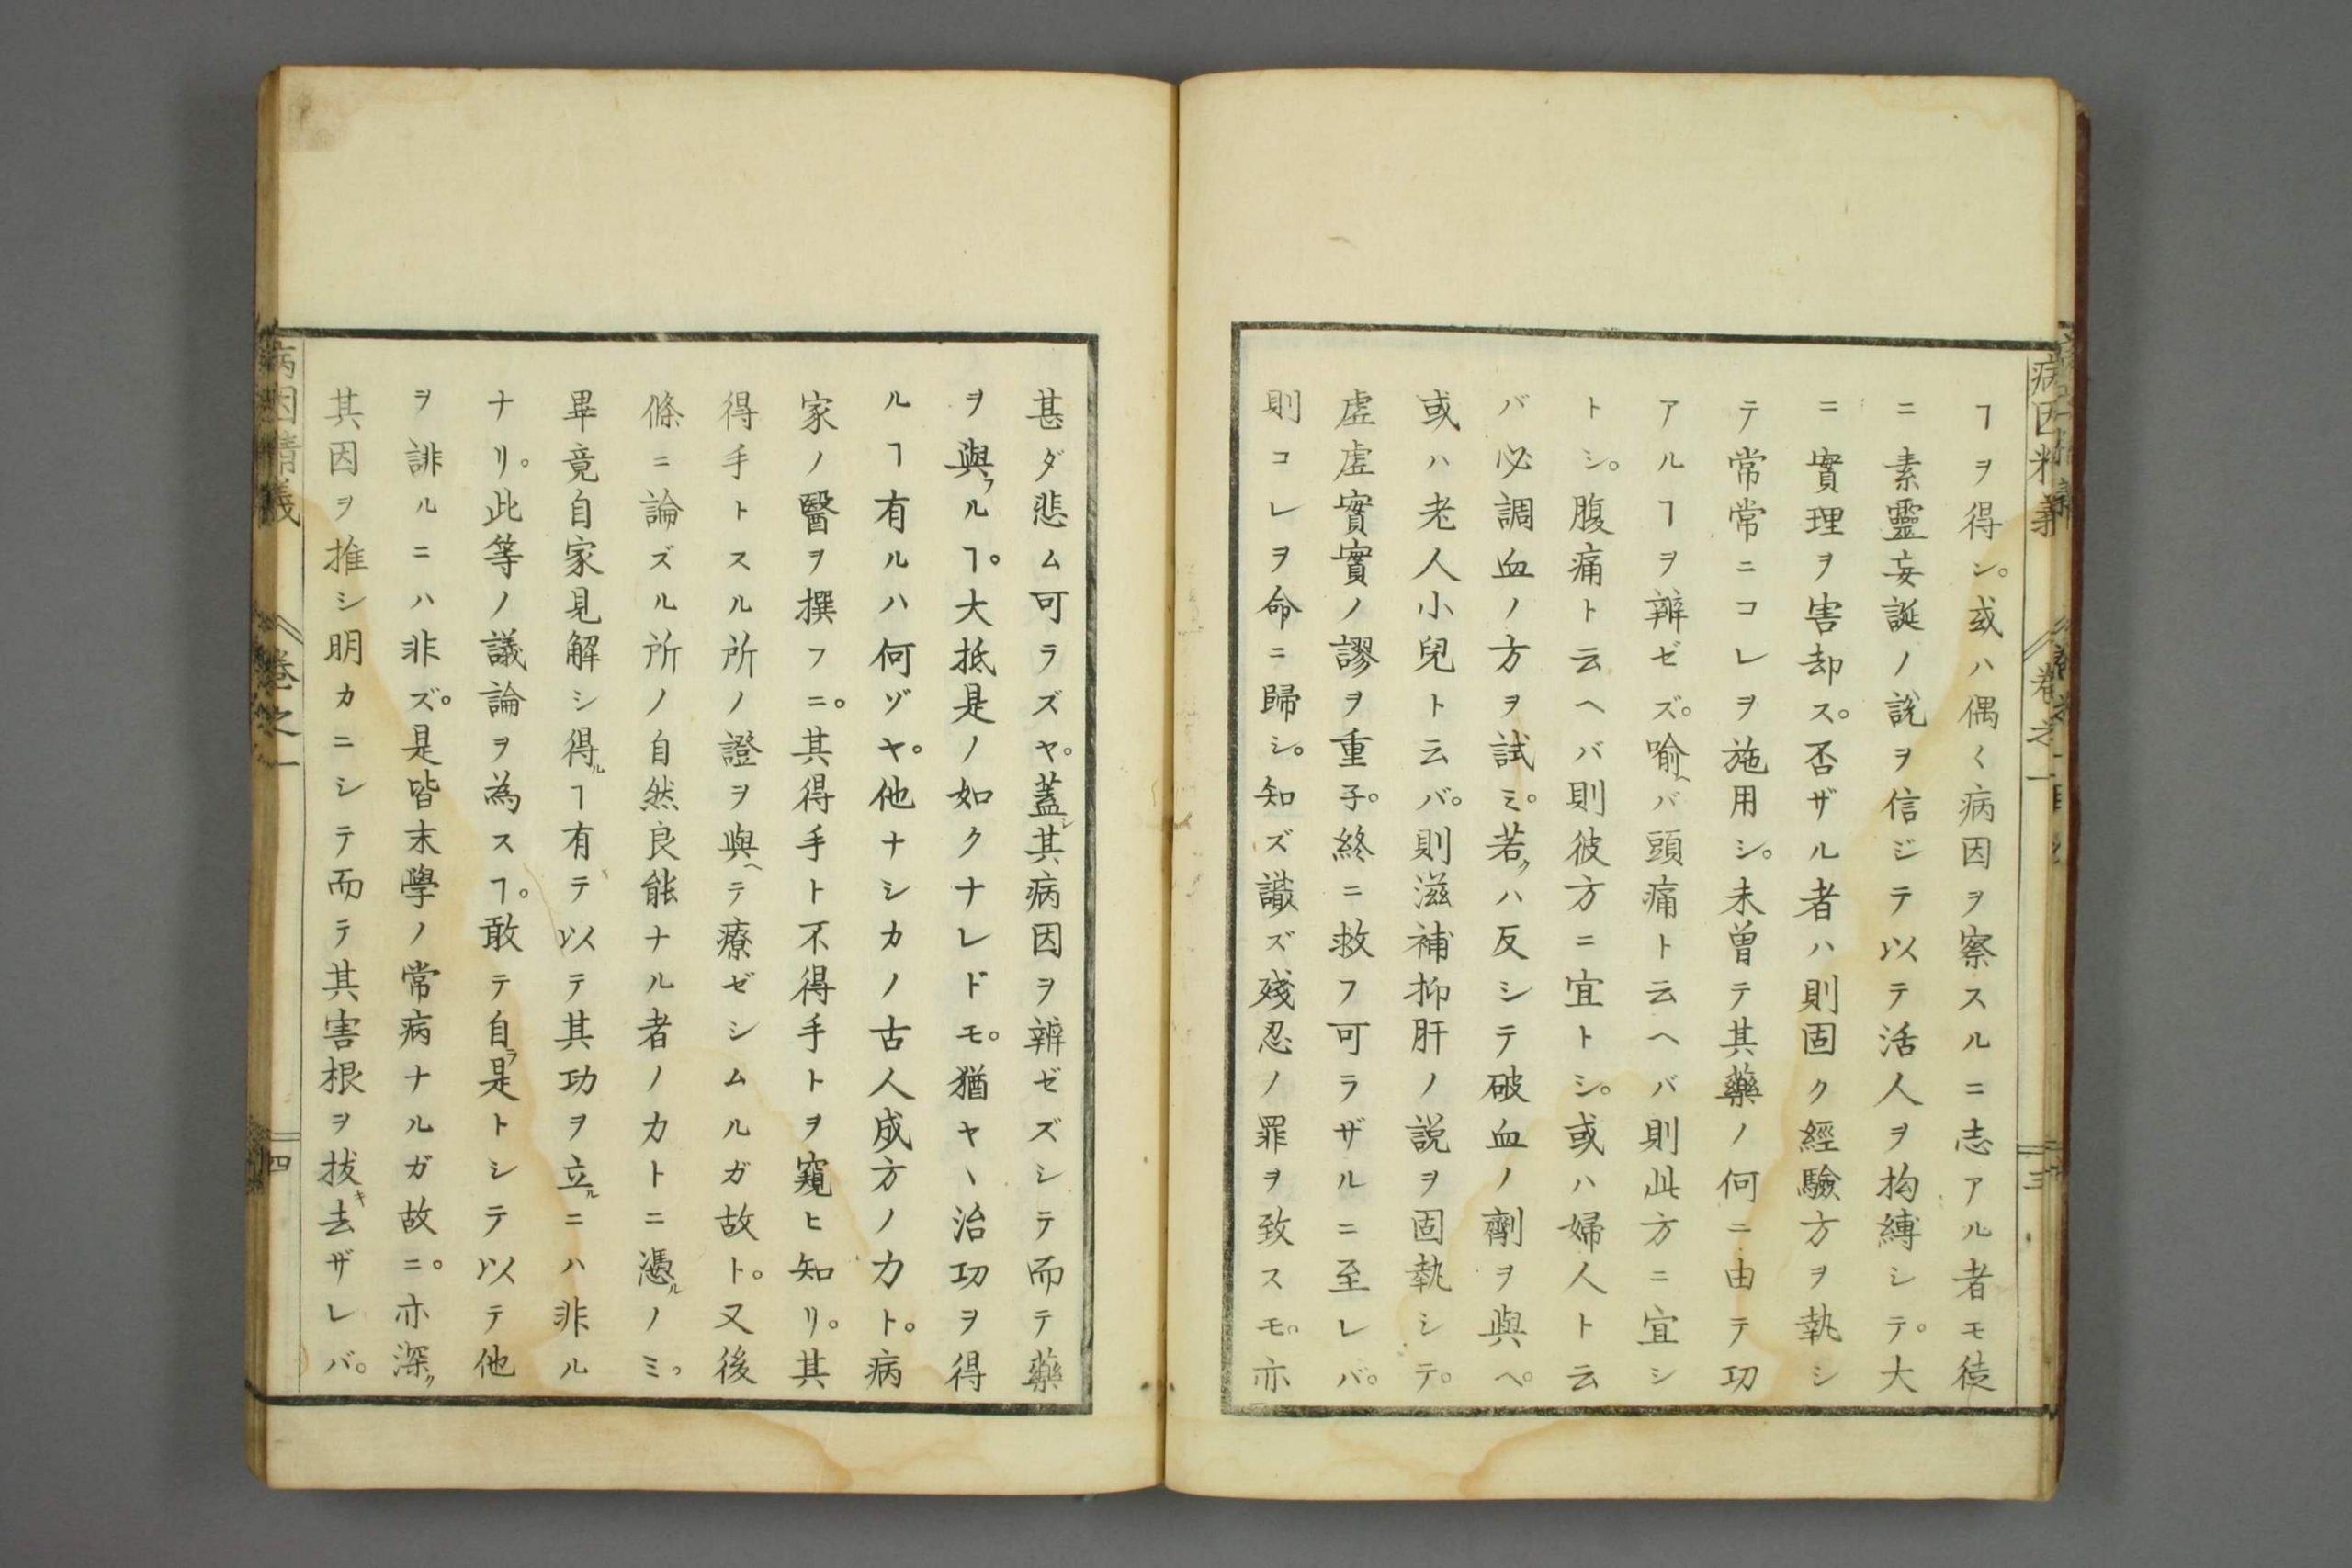 病因精義 卷之一 三
ヿヲ得ン。或ハ偶〱病因ヲ察スルニ志アル者モ徒
ニ素靈妄誕ノ説ヲ信ジテ以テ活人ヲ拘縛シテ。大
ニ實理ヲ害却ス。否ザル者ハ則固ク經驗方ヲ執シ
テ常常ニコレヲ施用シ。未曽テ其藥ノ何ニ由テ功
アルヿヲ辨ゼズ。喻ヘバ頭痛ト云ヘバ則此方ニ宜シ
トシ。腹痛ト云ヘバ則彼方ニ宜トシ。或ハ婦人ト云
バ必調血ノ方ヲ試ミ。若クハ反シテ破血ノ劑ヲ與ヘ。
或ハ老人小兒ト云バ。則滋補抑肝ノ説ヲ固執シテ。
虛虛實實ノ謬ヲ重子。終ニ救フ可ラザルニ至レバ。
則コレヲ命ニ歸シ。知ズ識ズ殘忍ノ罪ヲ致スモ。亦
甚ダ悲ム可ラズヤ。蓋シ其病因ヲ辨ゼズシテ而テ藥
ヲ與フルヿ。大抵是ノ如クナレドモ。猶ヤヽ治功ヲ得
ルヿ有ルハ何ゾヤ。他ナシカノ古人成方ノ力ト。病
家ノ醫ヲ撰フニ。其得手ト不得手トヲ窺ヒ知リ。其
得手トスル所ノ證ヲ與ヘテ療ゼシムルガ故ト。又後
條ニ論ズル所ノ自然良能ナル者ノ力トニ憑ルノミ。
畢竟自家見解シ得ルヿ有テ以テ其功ヲ立ルニハ非ル
ナリ。此等ノ議論ヲ為スヿ。敢テ自ラ是トシテ以テ他
ヲ誹ルニハ非ズ。是皆末學ノ常病ナルガ故ニ。亦深ク
其因ヲ推シ明カニシテ而テ其害根ヲ拔キ去ザレバ。
病因精義 卷之一 四